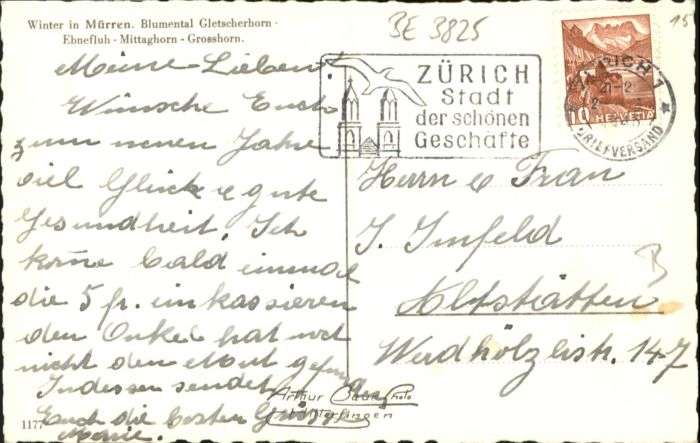 Winter in Mürren. Blumental Gletscherhorn -
Ebnefluh - Mittaghorn - Grosshorn.
BE 3825
15
Meine Lieben!
Wünsche Euch
zum neuen Jahre
viel Glück & gute
Gesundheit. Ich
kome bald einmal
die 5 fr. einkassieren
den Onkel hat wol
nicht den Mut gefun
Indessen sendet
Euch die besten Grüsse
Marie.
1177
Arthur Photo
ZÜRICH
Stadt
der schönen
Geschäfte
ZÜRICH 1
BRIEFVERSAND
10 HELVETIA
Herrn & Frau
J. Imfeld
Altstätten
B
Werdhölzlistr. 147